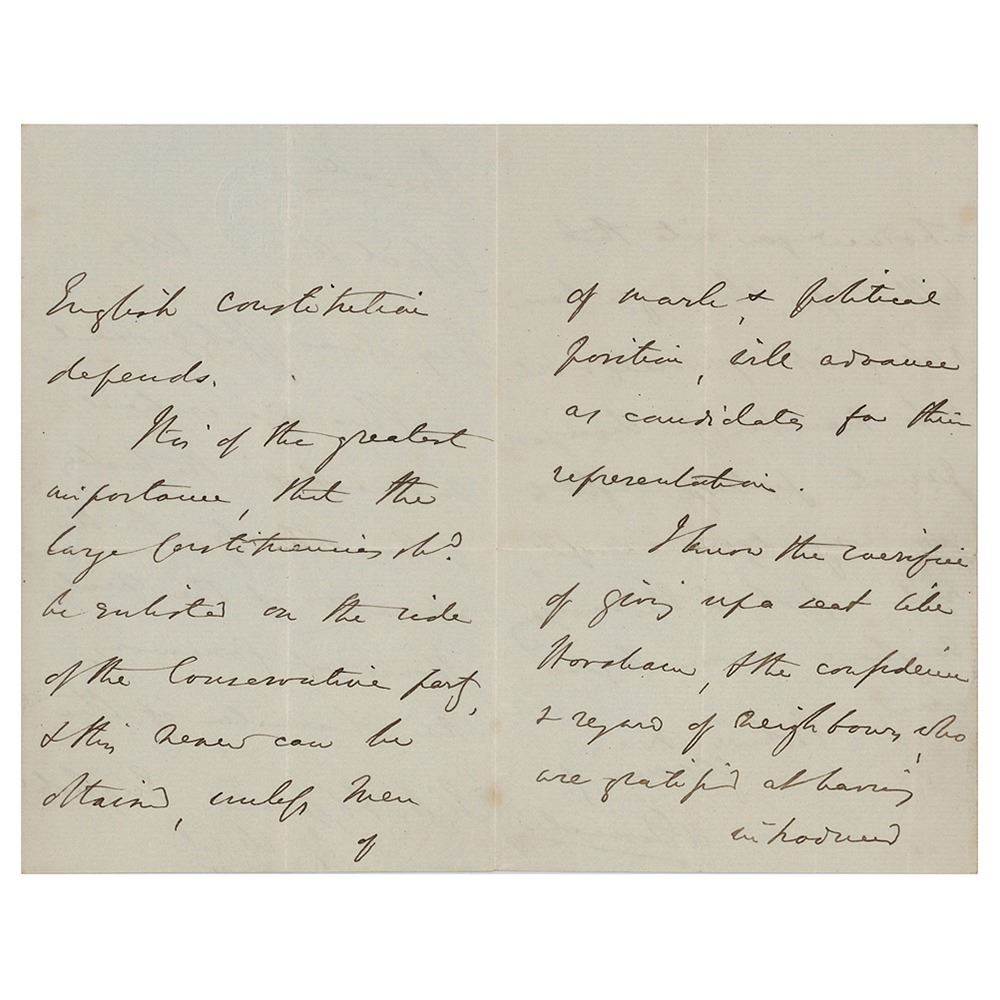 English constitution
depends.
It is of the greatest
importance, that the
large Constituencies shd.
be enlisted on the side
of the Conservative party,
& this never can be
obtained, unless men
of
of mark, & political
position, will advance
as candidates for their
representation.
I know the sacrifice
of giving up a seat like
Horsham, & the confidence
& regard of neighbours, who
are gratified at having
introduced